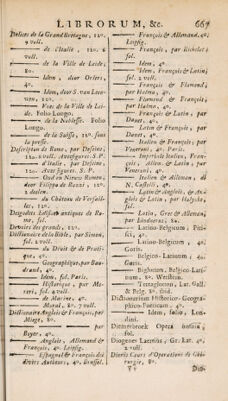 LIBRORUM, &c. 667
Delices de la Grand Bretagne, 12o.
9 voll.
— de l'Italie, 12o. 6
voll.
— de la Ville de Leide,
8o.
— Idem, door Orlers,
4o.
— Idem, door S. van Leeu-
wen, 12o.
— Vues de la Ville de Lei-
de. Folio Longo.
— de la Suisse, font
la presse.
Descripteur de Rome, par Desseine,
12o. 6 voll. Avec figures. S. P.
— d'Italie, par Desseine,
12o. Avec figures. S. P.
— Oud en Nieuw Romen,
door Filippo de Rozzi, 12o.
2 deelen.
— du Château de Versail-
les, 12o.
antiques de Ro-
me, fol.
Devoirs des grands, 12o.
Dictionaire de la Bible, par Simon,
fol. 2 voll.
— du Droit & de Prati-
que, 4o.
— Geographique, par Bau-
drand, 4o.
— Idem, fol. Paris.
— Historique, par Mo-
reri, fol. 4 voll.
— de Marine, 4o.
— Moral, 8o. 7 voll.
Dictionaire Anglois & François, par
Miege, 8o.
— par
Boyer, 4o.
— Espagnol & François des
divers Auteurs, 4o. Brussel.
— François & Allemand, 4o.
Leipsig.
— François, par Richelet
fol.
— Idem, 4o.
— Idem, François & Latin,
fol. 2 voll.
— François & Flamend,
par Halma, 4o.
— Flamend & François,
par Halma, 4o.
— François & Latin, par
Danet, 4o.
— Latin & François, par
Danet, 4o.
— Italien & François, par
Veneroni, 4o. Paris.
— Imperiale Italien, Fran-
çois, Allem. & Latin, par
Veneroni, 4o.
— Italien & Allemand, di
N. Castelli, 4o.
— Latin & Anglois, & An-
glois & Latin, par Holyoke,
fol.
— Latin, Grec & Alleman,
par Linderns, 8o.
— Latino-Belgicum, Piti-
sci, 4o.
— Latino-Belgicum, 4o.
Goris.
— Belgico-Latinum, 4o.
Goris.
— Biglotton, Belgico-Lati-
num, 8o. Westfrin.
— Tetraglotton, Lat. Gall.
& Belg. 8o. ibid.
Dictionarium Historico-Geogra-
phico Poeticum, 4o.
— Idem, folio, Lon-
dini.
Diemerbroek Opera omnia,
fol.
Diogenes Laertius, Gr. Lat. 4o.
2 voll.
Dionis Cours d'Operations de Chi-
rurgie, 8o.